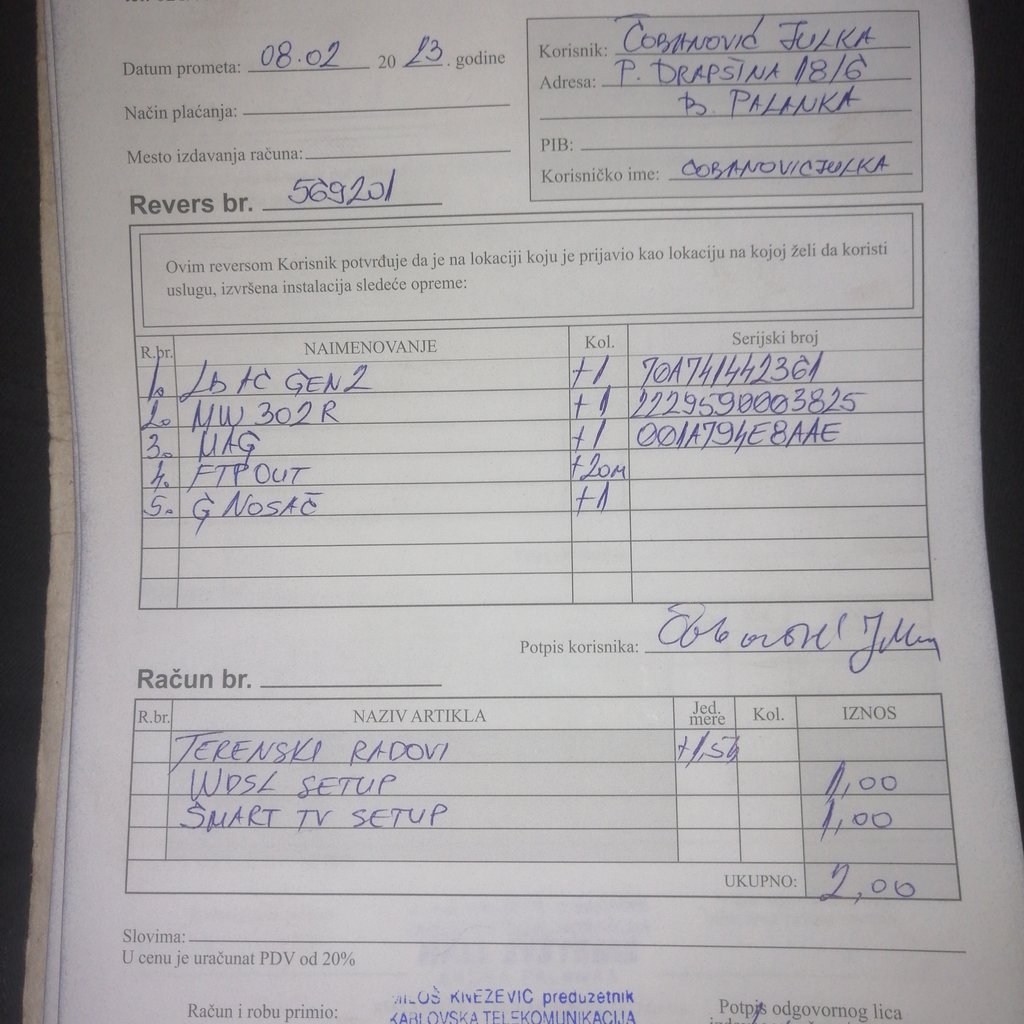 Datum prometa: 08.02 2023. godine
Način plaćanja:
Mesto izdavanja računa:
Revers br. 569201
Korisnik: ČOBANOVIĆ JULKA
Adresa: P. DRAPŠINA 18/6
B. PALANKA
PIB:
Korisničko ime: COBANOVICJULKA
Ovim reversom Korisnik potvrđuje da je na lokaciji koju je prijavio kao lokaciju na kojoj želi da koristi
uslugu, izvršena instalacija sledeće opreme:
R.br. NAIMENOVANJE Kol. Serijski broj
1. LB AC GEN2 +1 70A741442361
2. MW 302R +1 2229590003825
3. MAG +1 001A794E8AAE
4. FTP OUT +20M
5. G NOSAČ +1
Potpis korisnika:
Račun br.
R.br. NAZIV ARTIKLA Jed. mere Kol. IZNOS
TERENSKI RADOVI +1,5h
WDSL SETUP 1,00
SMART TV SETUP 1,00
UKUPNO: 2,00
Slovima:
U cenu je uračunat PDV od 20%
Račun i robu primio:
MILOŠ KNEŽEVIĆ preduzetnik
KABLOVSKA TELEKOMUNIKACIJA
Potpis odgovornog lica